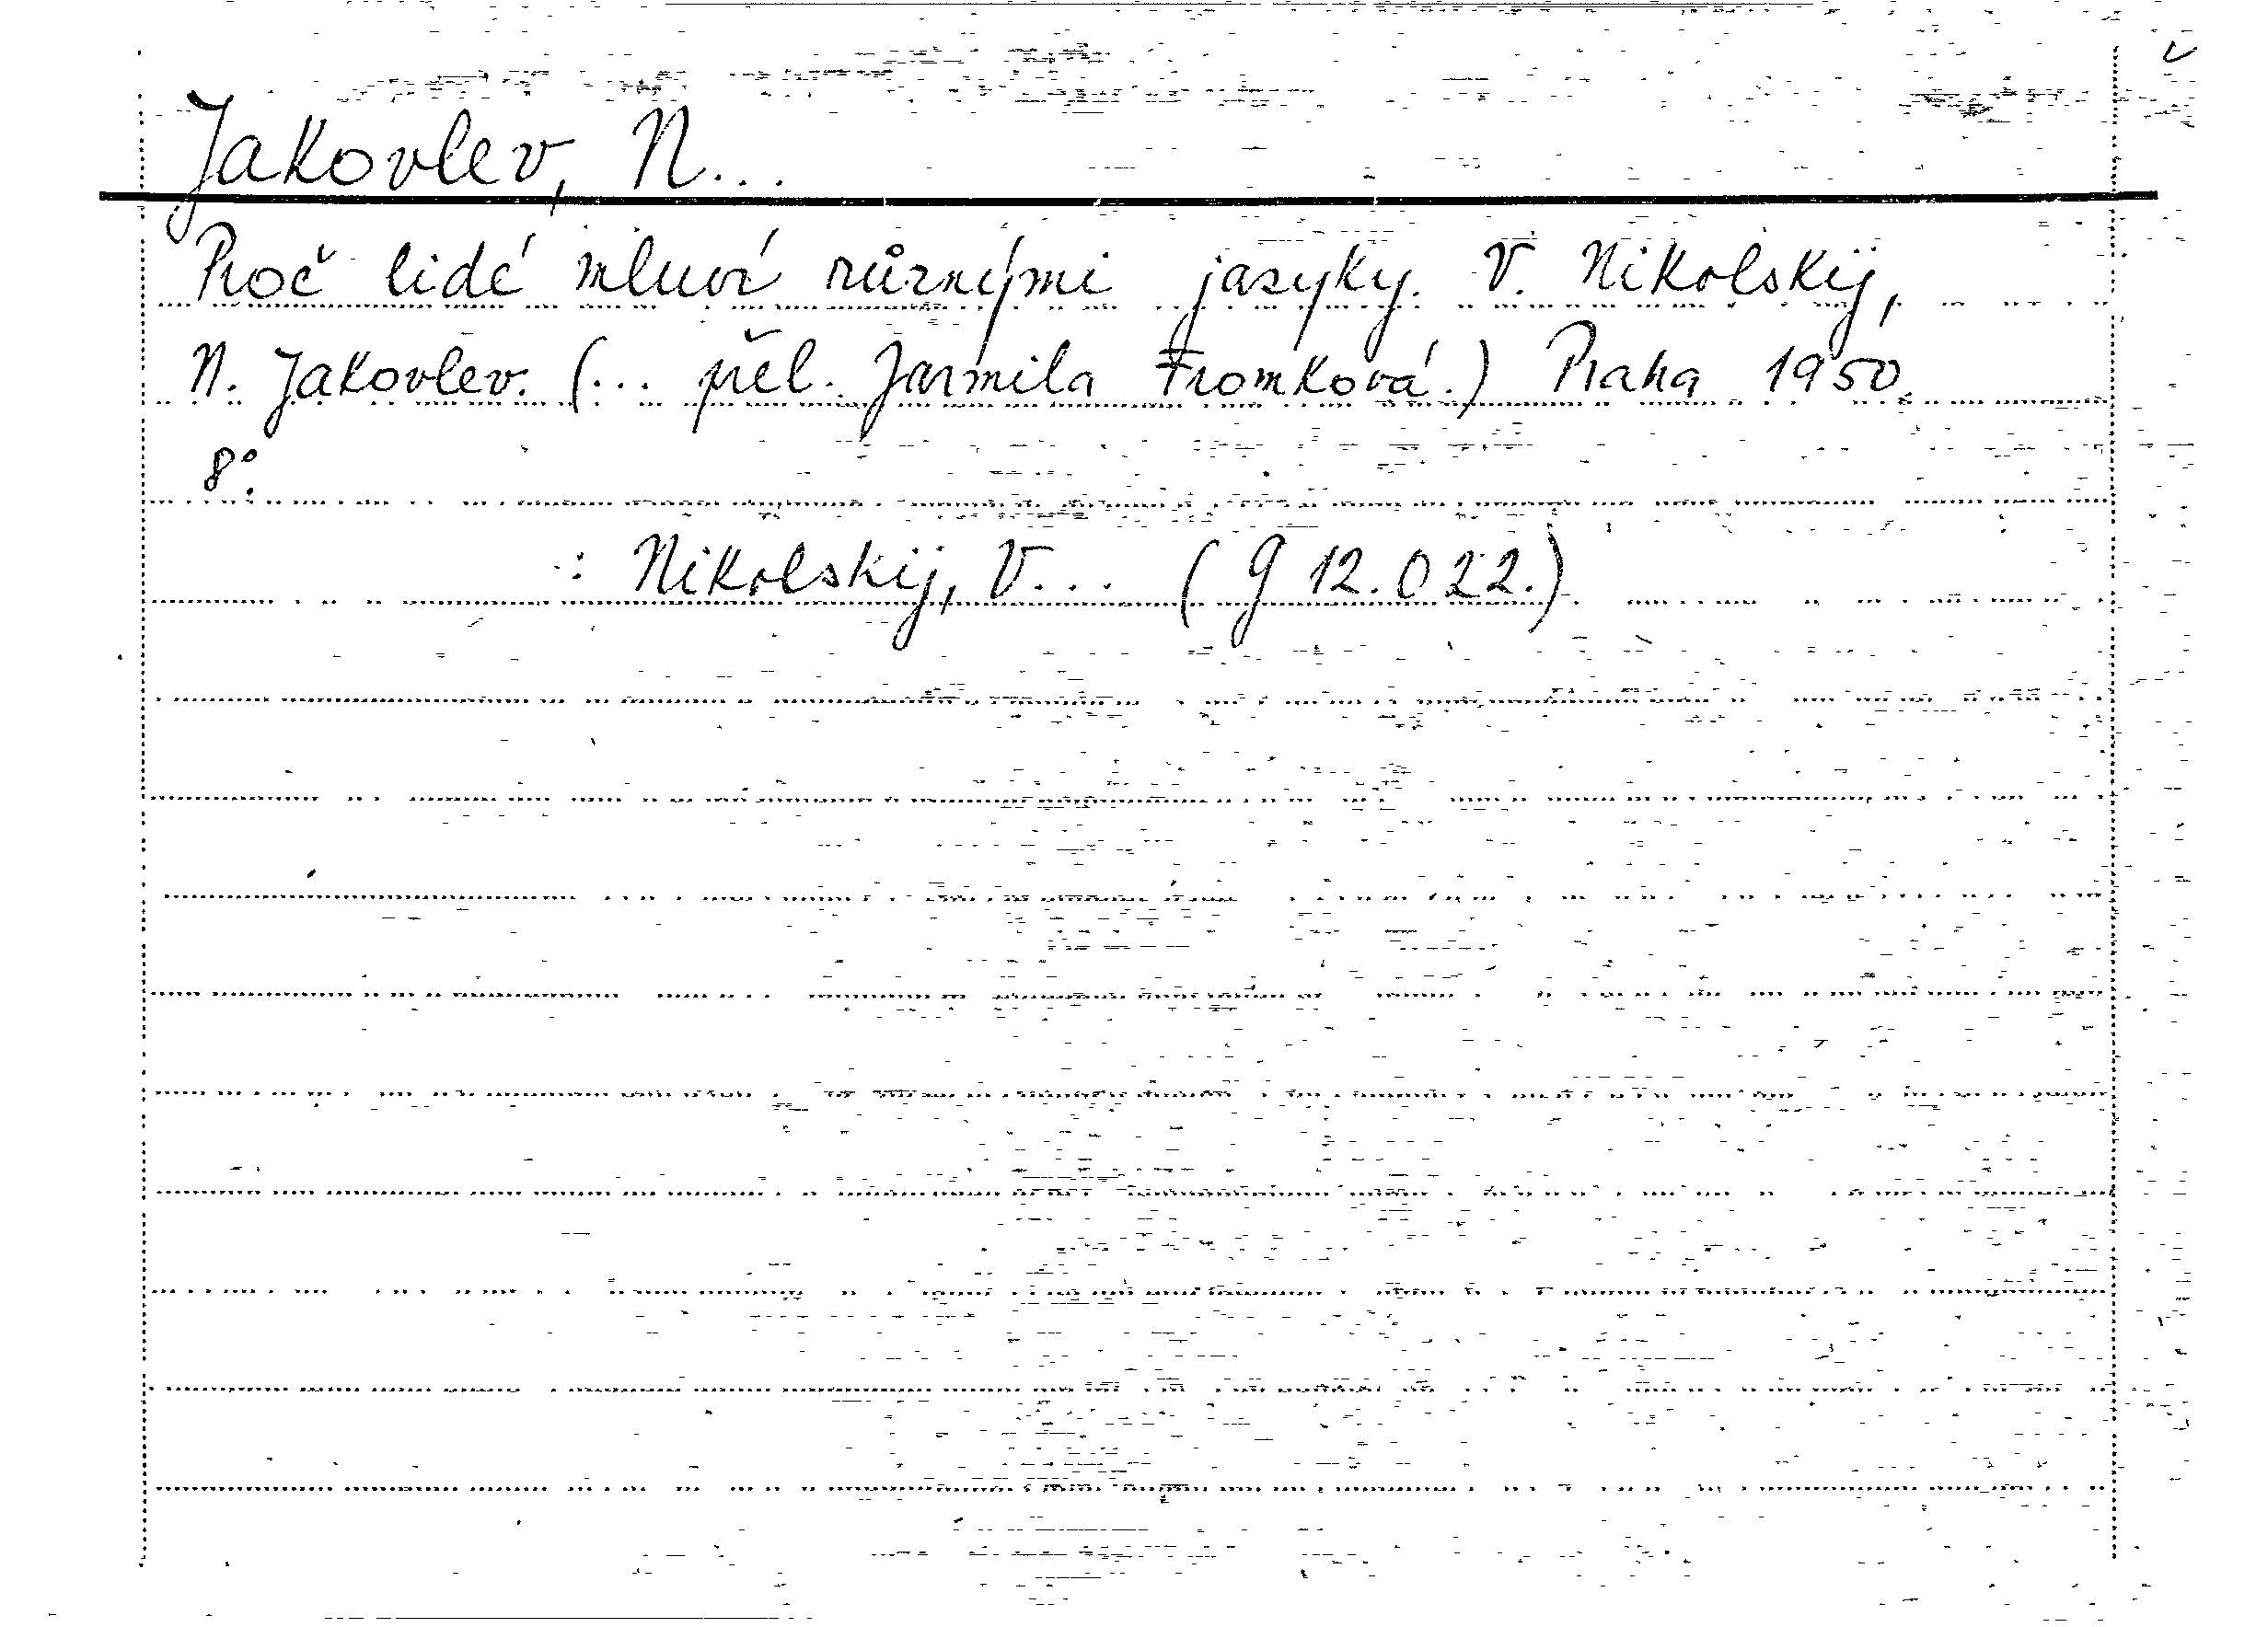 Jakovlev, N...
Proč lidé mluví různými jazyky. V. Nikolskij,
N. Jakovlev. (... přel. Jarmila Fromková.) Praha 1950.
8°.
: Nikolskij, V... (G 12.022.)